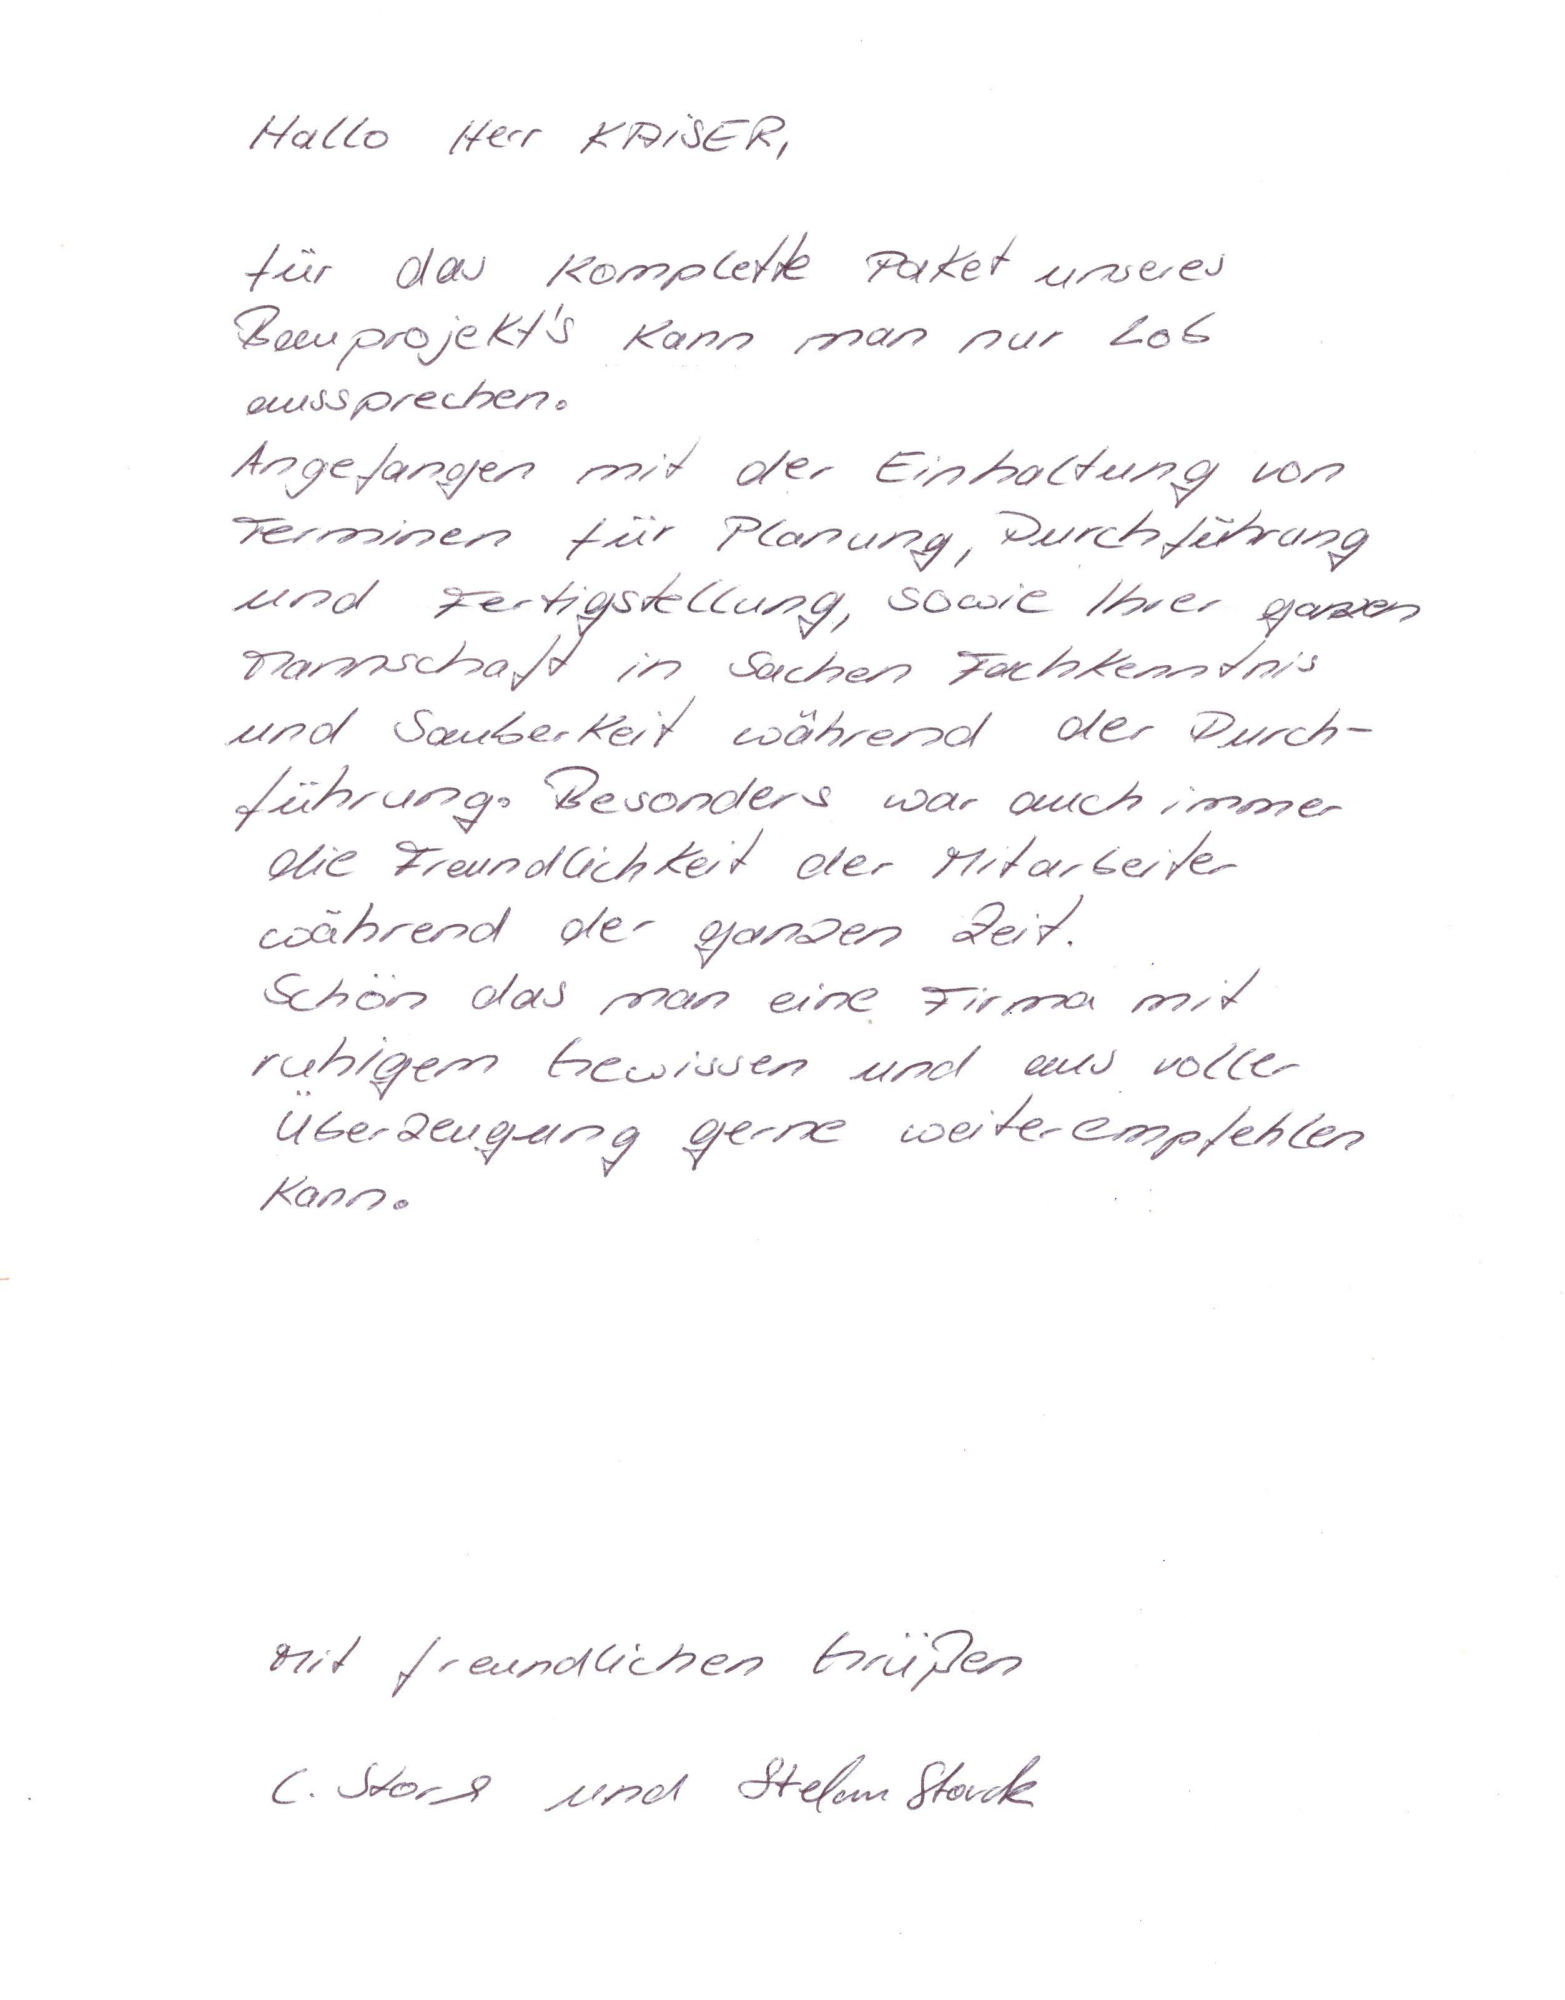 Hallo Herr KAiSER,
für das komplette Paket unseres
Bauprojekt's kann man nur Lob
aussprechen.
Angefangen mit der Einhaltung von
Terminen für Planung, Durchführung
und Fertigstellung, sowie Ihrer ganzen
Mannschaft in Sachen Fachkenntnis
und Sauberkeit während der Durch-
führung. Besonders war auch immer
die Freundlichkeit der Mitarbeiter
während der ganzen Zeit.
Schön das man eine Firma mit
ruhigem Gewissen und aus voller
Überzeugung gerne weiterempfehlen
kann.
Mit freundlichen Grüßen
C. und Stefan